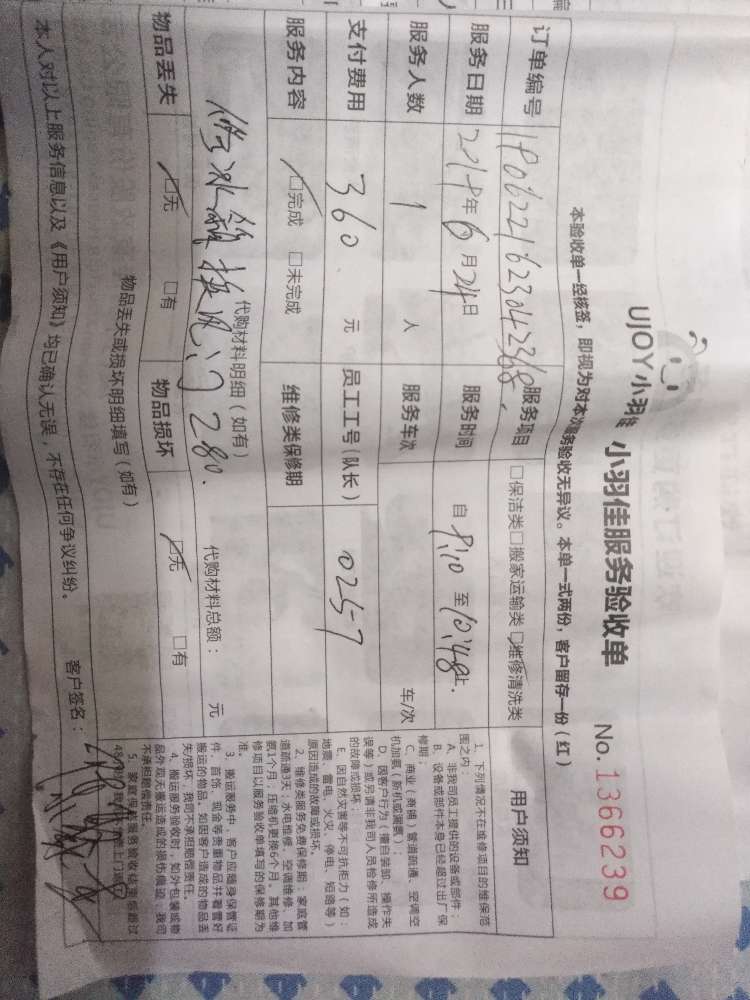 UJOY小羽佳 小羽佳服务验收单 No.1366239
本验收单一经核签，即视为对本次服务验收无异议。本单一式两份，客户留存一份（红）
订单编号 1906221623042368 服务项目 □保洁类□搬家运输类☑维修清洗类
服务日期 2019年6月24日 服务时间 自 9:10 至 10:48止.
服务人数 1 人 服务车次 车/次
支付费用 360 元 员工工号（队长） 0257
服务内容 ☑完成 □未完成 维修类保修期
代购材料明细（如有） 代购材料总额： 元
修冰箱换风门 280.
物品丢失 ☑无 □有 物品损坏 ☑无 □有
物品丢失或损坏明细填写（如有）
本人对以上服务信息以及《用户须知》均已确认无误，不存在任何争议纠纷。 客户签名：
用户须知
1、下列情况不在维修项目的维保范
围之内：
A、非我司员工提供的设备或部件；
B、设备或部件本身已经超过出厂保
修期；
C、商业（商铺）管道疏通、空调空
机加氨（新机或漏氨）；
D、因客户行为（擅自装卸、操作失
误等）或另请非我司人员检修所造成
的故障或损坏；
E、因自然灾害等不可抗拒力（如：
地震、雷电、火灾、停电、短路等）
原因造成的故障或损坏。
2、维修类服务免费保修期：家庭管
道疏通3天；水电维修、空调维修、加
氨1个月；压缩机更换6个月。其他维
修项目以服务验收单填写的保修期为
准。
3、搬运服务中，客户应随身保管证
件、首饰、现金等贵重物品并看管好
搬运的物品，如因客户造成的物品丢
失/损坏，我司不承担赔偿责任。
4、搬运服务验收时，如外包装或物
品外观无搬运造成的损伤痕迹，我司
不承担赔偿责任。
5、家庭保洁服务验收结束后超过